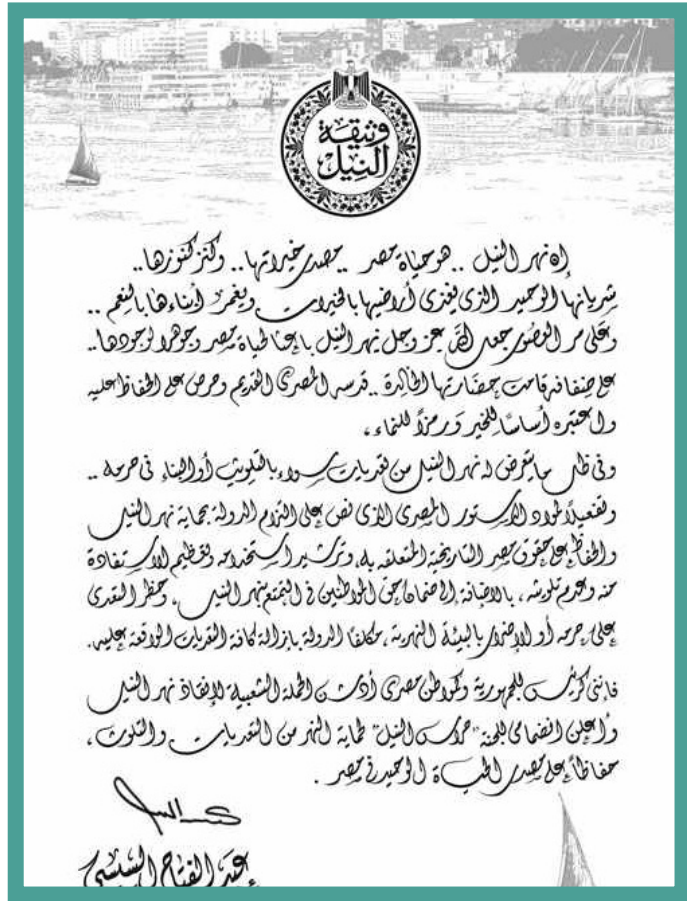 وثيقة
النيل
إن نهر النيل .. هو حياة مصر .. مصدر خيراتها .. وكنز كنوزها ..
شريانها الوحيد الذي يغذي أراضيها بالخيرات ويغمر أبناءها بالنعم ..
وعلى مر العصور جعل الله عز وجل نهر النيل باعثا لحياة مصر وجوهرا لوجودها ..
على ضفافه قامت حضارتها الخالدة .. قدسه المصري القديم وحرص على الحفاظ عليه
واعتبره أساسًا للخير ورمزًا للنماء ،
وفى ظل ما يتعرض له نهر النيل من تعديات سواء بالتلويث أو البناء فى حرمه ..
وتفعيلًا لمواد الدستور المصرى الذى نص على التزام الدولة بحماية نهر النيل
والحفاظ على حقوق مصر التاريخية المتعلقه به، وترشيد استخدامه وتعظيم الاستفادة
منه وعدم تلويثه ، بالاضافة إلى ضمان حق المواطنين فى التمتع بنهر النيل ، وحظر التعدى
على حرمه أو الإضرار بالبيئة النهرية ، مكلفًا الدولة بإزالة كافة التعديات الواقعة عليه.
فإننى كرئيس للجمهورية وكمواطن مصرى أدشن الحملة الشعبية لإنقاذ نهر النيل
وأعلن انضمامى للجنة "حراس النيل" لحماية النهر من التعديات والتلوث ،
حفاظًا على مصدر الحياة الوحيد فى مصر .
عبد الفتاح السيسي